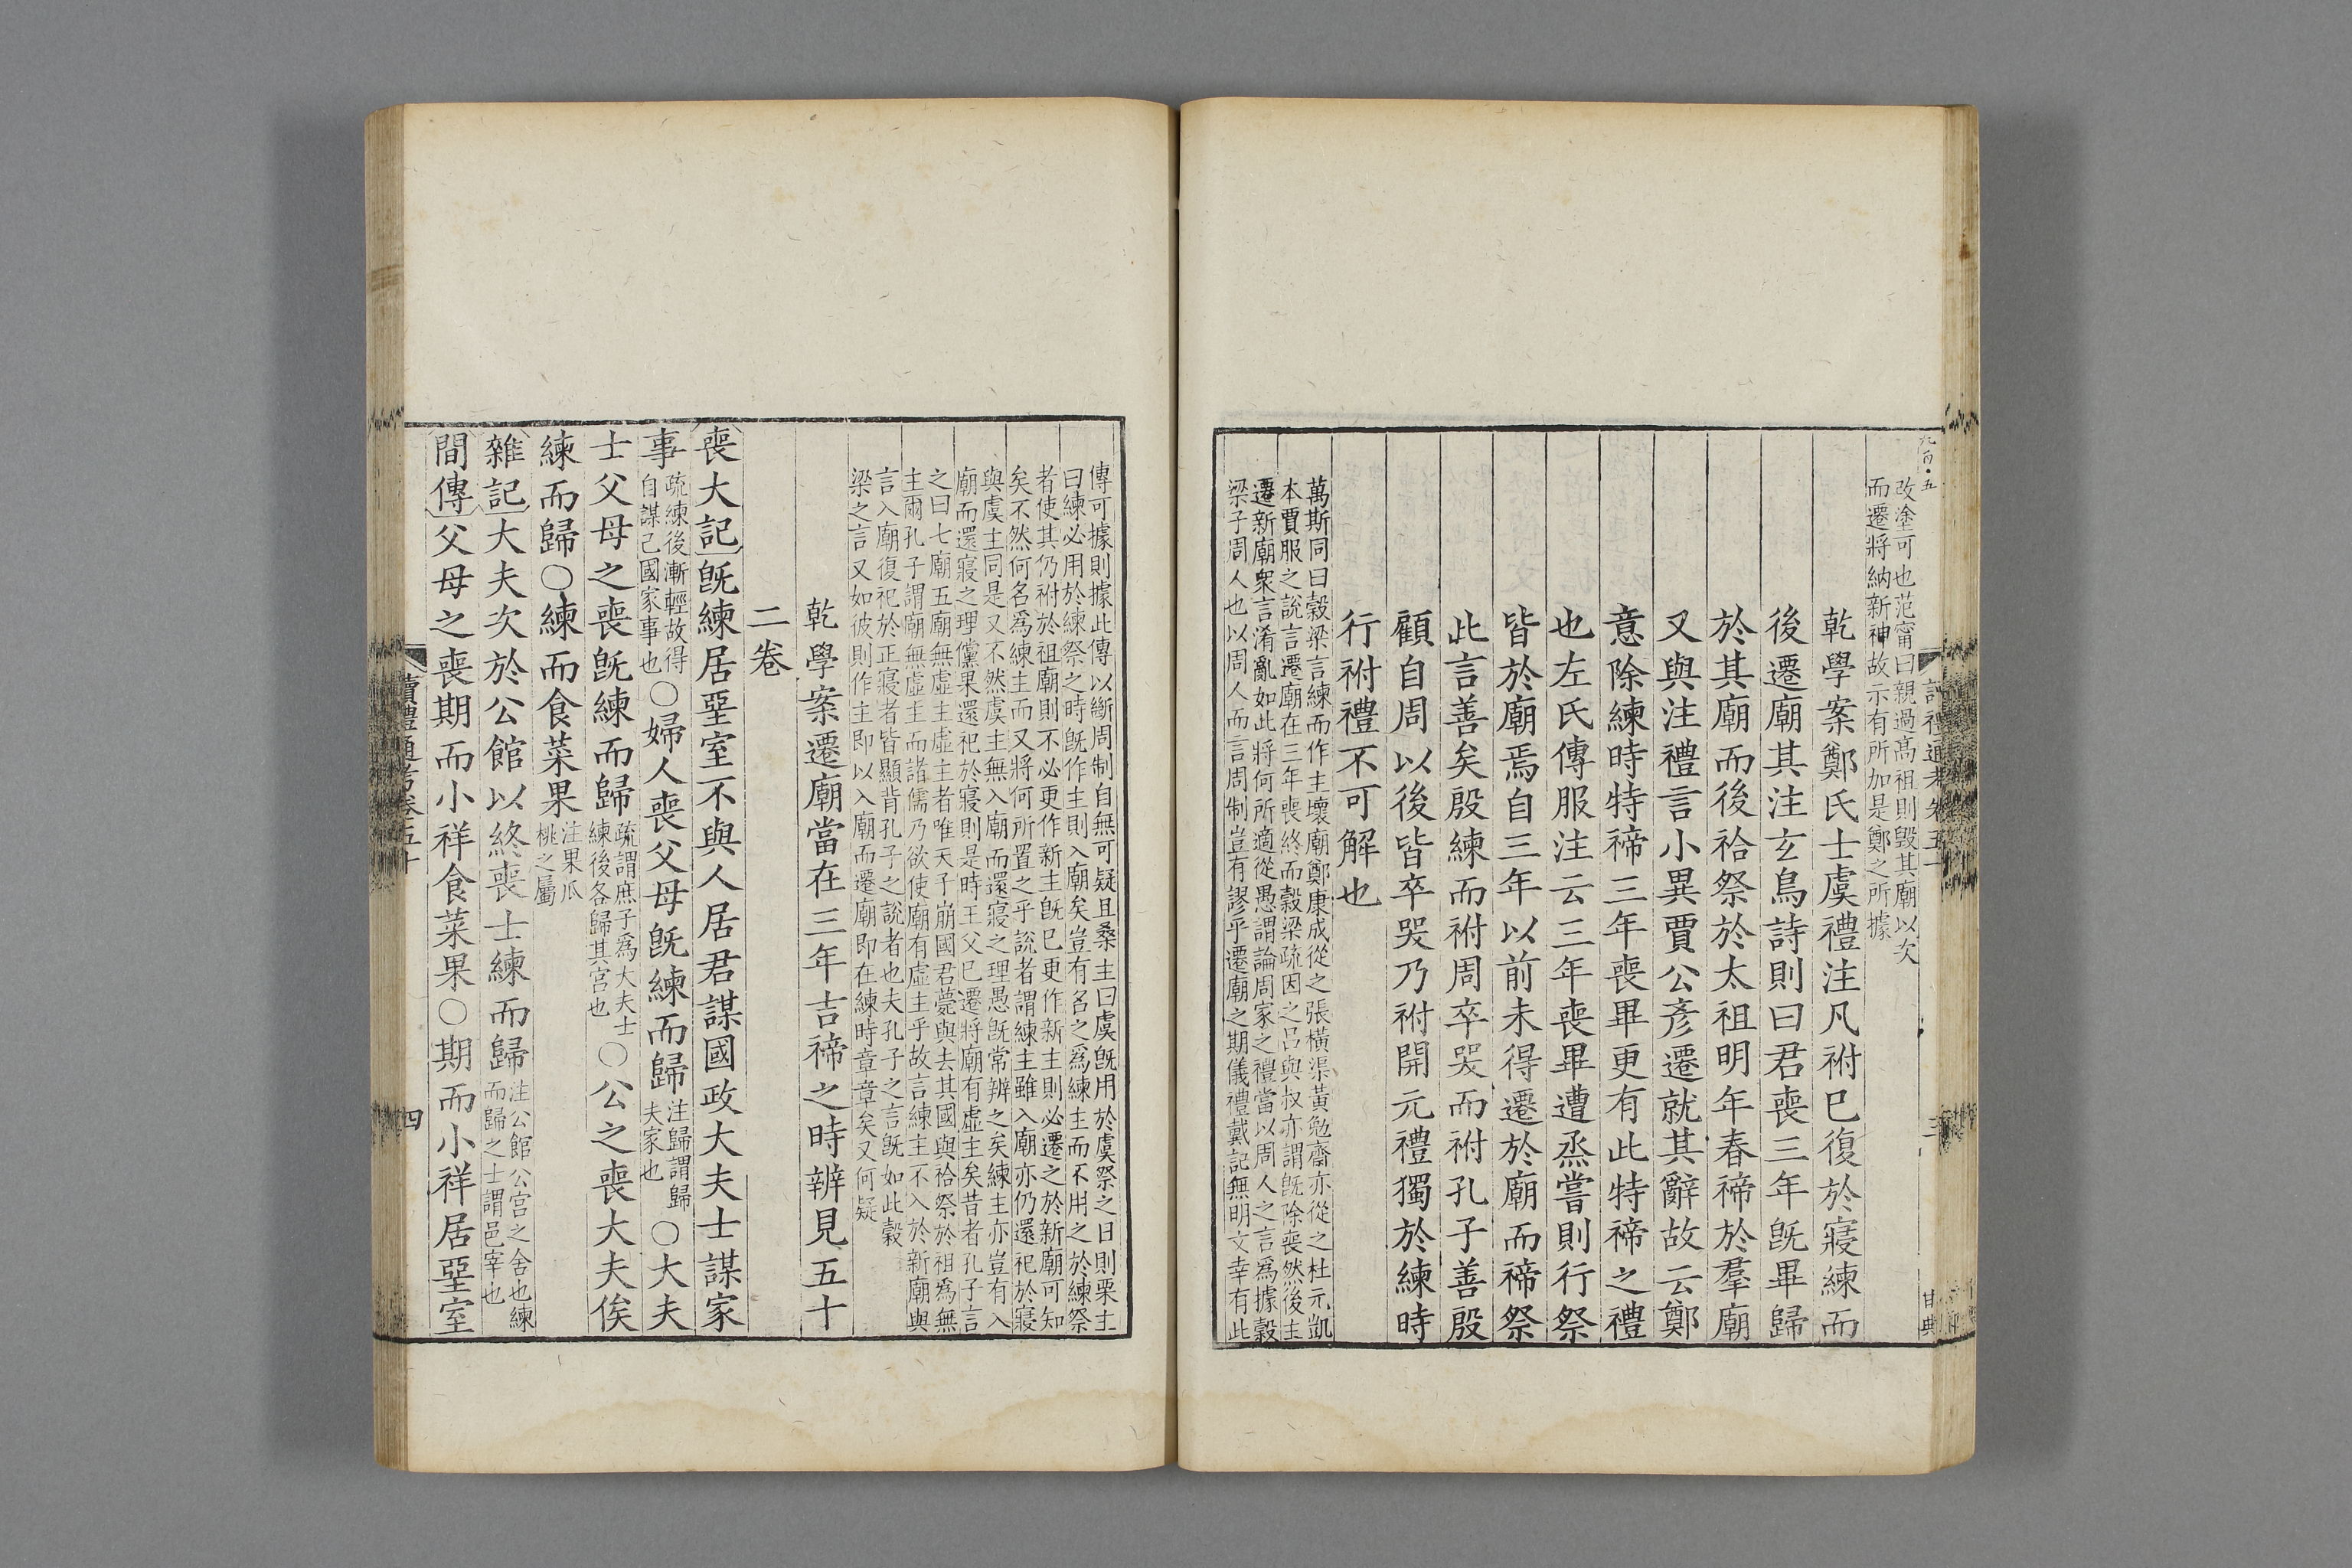 九百五
改塗可也范甯曰親過高祖則毀其廟以次
而遷將納新神故示有所加是鄭之所據
乾學案鄭氏士虞禮注凡祔已復於寢練而
後遷廟其注玄鳥詩則曰君喪三年旣畢歸
於其廟而後祫祭於太祖明年春禘於羣廟
又與注禮言小異賈公彥遷就其辭故云鄭
意除練時特禘三年喪畢更有此特禘之禮
也左氏傳服注云三年喪畢遭烝嘗則行祭
皆於廟焉自三年以前未得遷於廟而禘祭
此言善矣殷練而祔周卒哭而祔孔子善殷
顧自周以後皆卒哭乃祔開元禮獨於練時
行祔禮不可解也
萬斯同曰穀梁言練而作主壞廟鄭康成從之張橫渠黃勉齋亦從之杜元凱
本賈服之說言遷廟在三年喪終而穀梁疏因之呂與叔亦謂旣除喪然後主
遷新廟衆言淆亂如此將何所適從愚謂論周家之禮當以周人之言爲據穀
梁子周人也以周人而言周制豈有謬乎遷廟之期儀禮戴記無明文幸有此
甘典
傳可據則據此傳以斷周制自無可疑且桑主曰虞旣用於虞祭之日則栗主
曰練必用於練祭之時旣作主則入廟矣豈有名之爲練主而不用之於練祭
者使其仍祔於祖廟則不必更作新主旣已更作新主則必遷之於新廟可知
矣不然何名爲練主而又將何所置之乎說者謂練主雖入廟亦仍還祀於寢
與虞主同是又不然虞主無入廟而還寢之理愚旣常辨之矣練主亦豈有入
廟而還寢之理儻果還祀於寢則是時王父已遷將廟有虛主矣昔者孔子言
之曰七廟五廟無虛主虛主者唯天子崩國君薨與去其國與祫祭於祖爲無
主爾孔子謂廟無虛主而諸儒乃欲使廟有虛主乎故言練主不入於新廟與
言入廟復祀於正寢者皆顯背孔子之說者也夫孔子之言旣如此穀
梁之言又如彼則作主即以入廟而遷廟即在練時章章矣又何疑
乾學案遷廟當在三年吉禘之時辨見五十
二卷
喪大記旣練居堊室不與人居君謀國政大夫士謀家
事疏練後漸輕故得自謀己國家事也○婦人喪父母旣練而歸注歸謂歸夫家也○大夫
士父母之喪旣練而歸疏謂庶子爲大夫士練後各歸其宮也○公之喪大夫俟
練而歸○練而食菜果注果瓜桃之屬
雜記大夫次於公館以終喪士練而歸注公館公宮之舍也練而歸之士謂邑宰也
間傳父母之喪期而小祥食菜果○期而小祥居堊室
讀禮通考卷五十
四